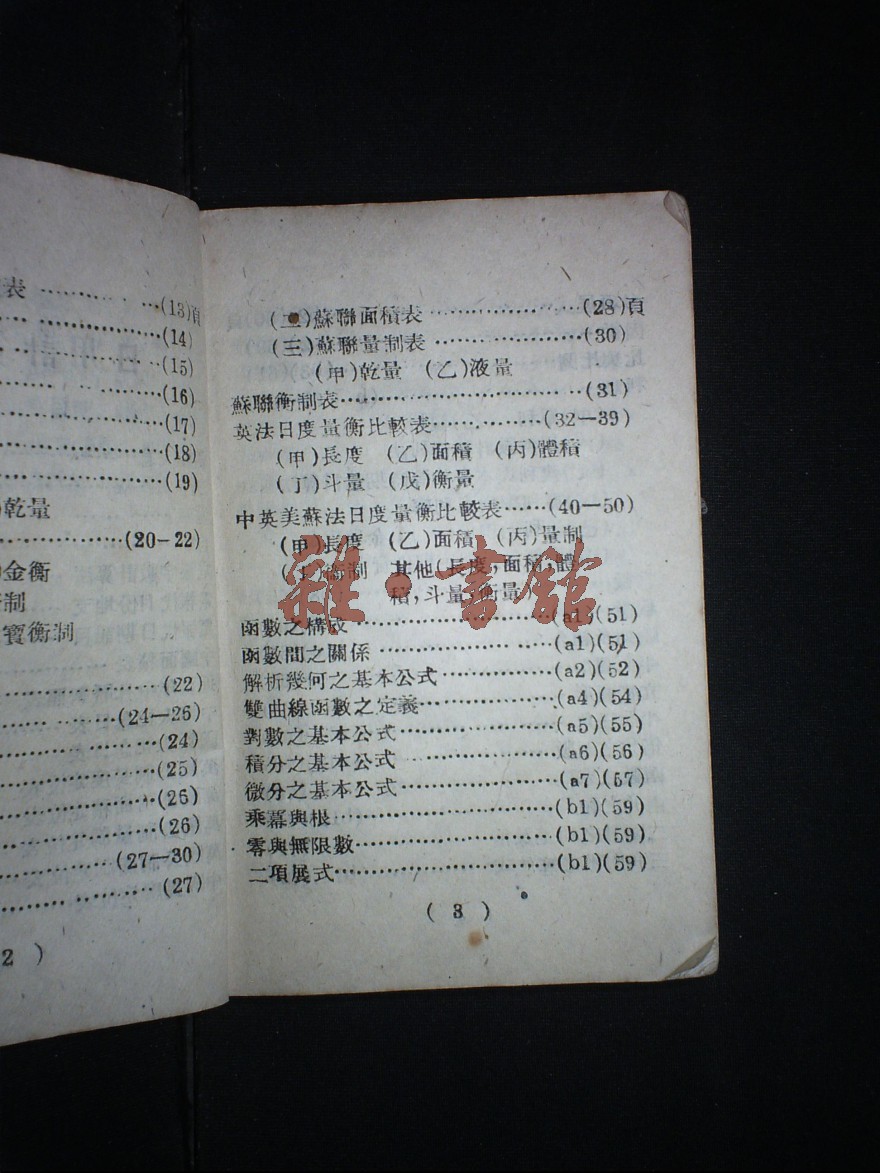 表…………(13)頁
(14)
(15)
(16)
(17)
(18)
(19)
乾量
(20-22)
金衡
制
寶衡制
(22)
(24—26)
(24)
(25)
(26)
(26)
(27—30)
(27)
2 )
(二)蘇聯面積表…………(28)頁
(三)蘇聯量制表…………(30)
(甲)乾量 (乙)液量
蘇聯衡制表…………(31)
英法日度量衡比較表…………(32—39)
(甲)長度 (乙)面積 (丙)體積
(丁)斗量 (戊)衡量
中英美蘇法日度量衡比較表……(40—50)
(甲)長度 (乙)面積 (丙)量制
(丁)衡制 其他(長度,面積,體
積,斗量,衡量)
函數之構成…………(a1)(51)
函數間之關係…………(a1)(51)
解析幾何之基本公式…………(a2)(52)
雙曲線函數之定義…………(a4)(54)
對數之基本公式…………(a5)(55)
積分之基本公式…………(a6)(56)
微分之基本公式…………(a7)(57)
乘冪與根…………(b1)(59)
零與無限數…………(b1)(59)
二項展式…………(b1)(59)
( 3 )
雜·書館